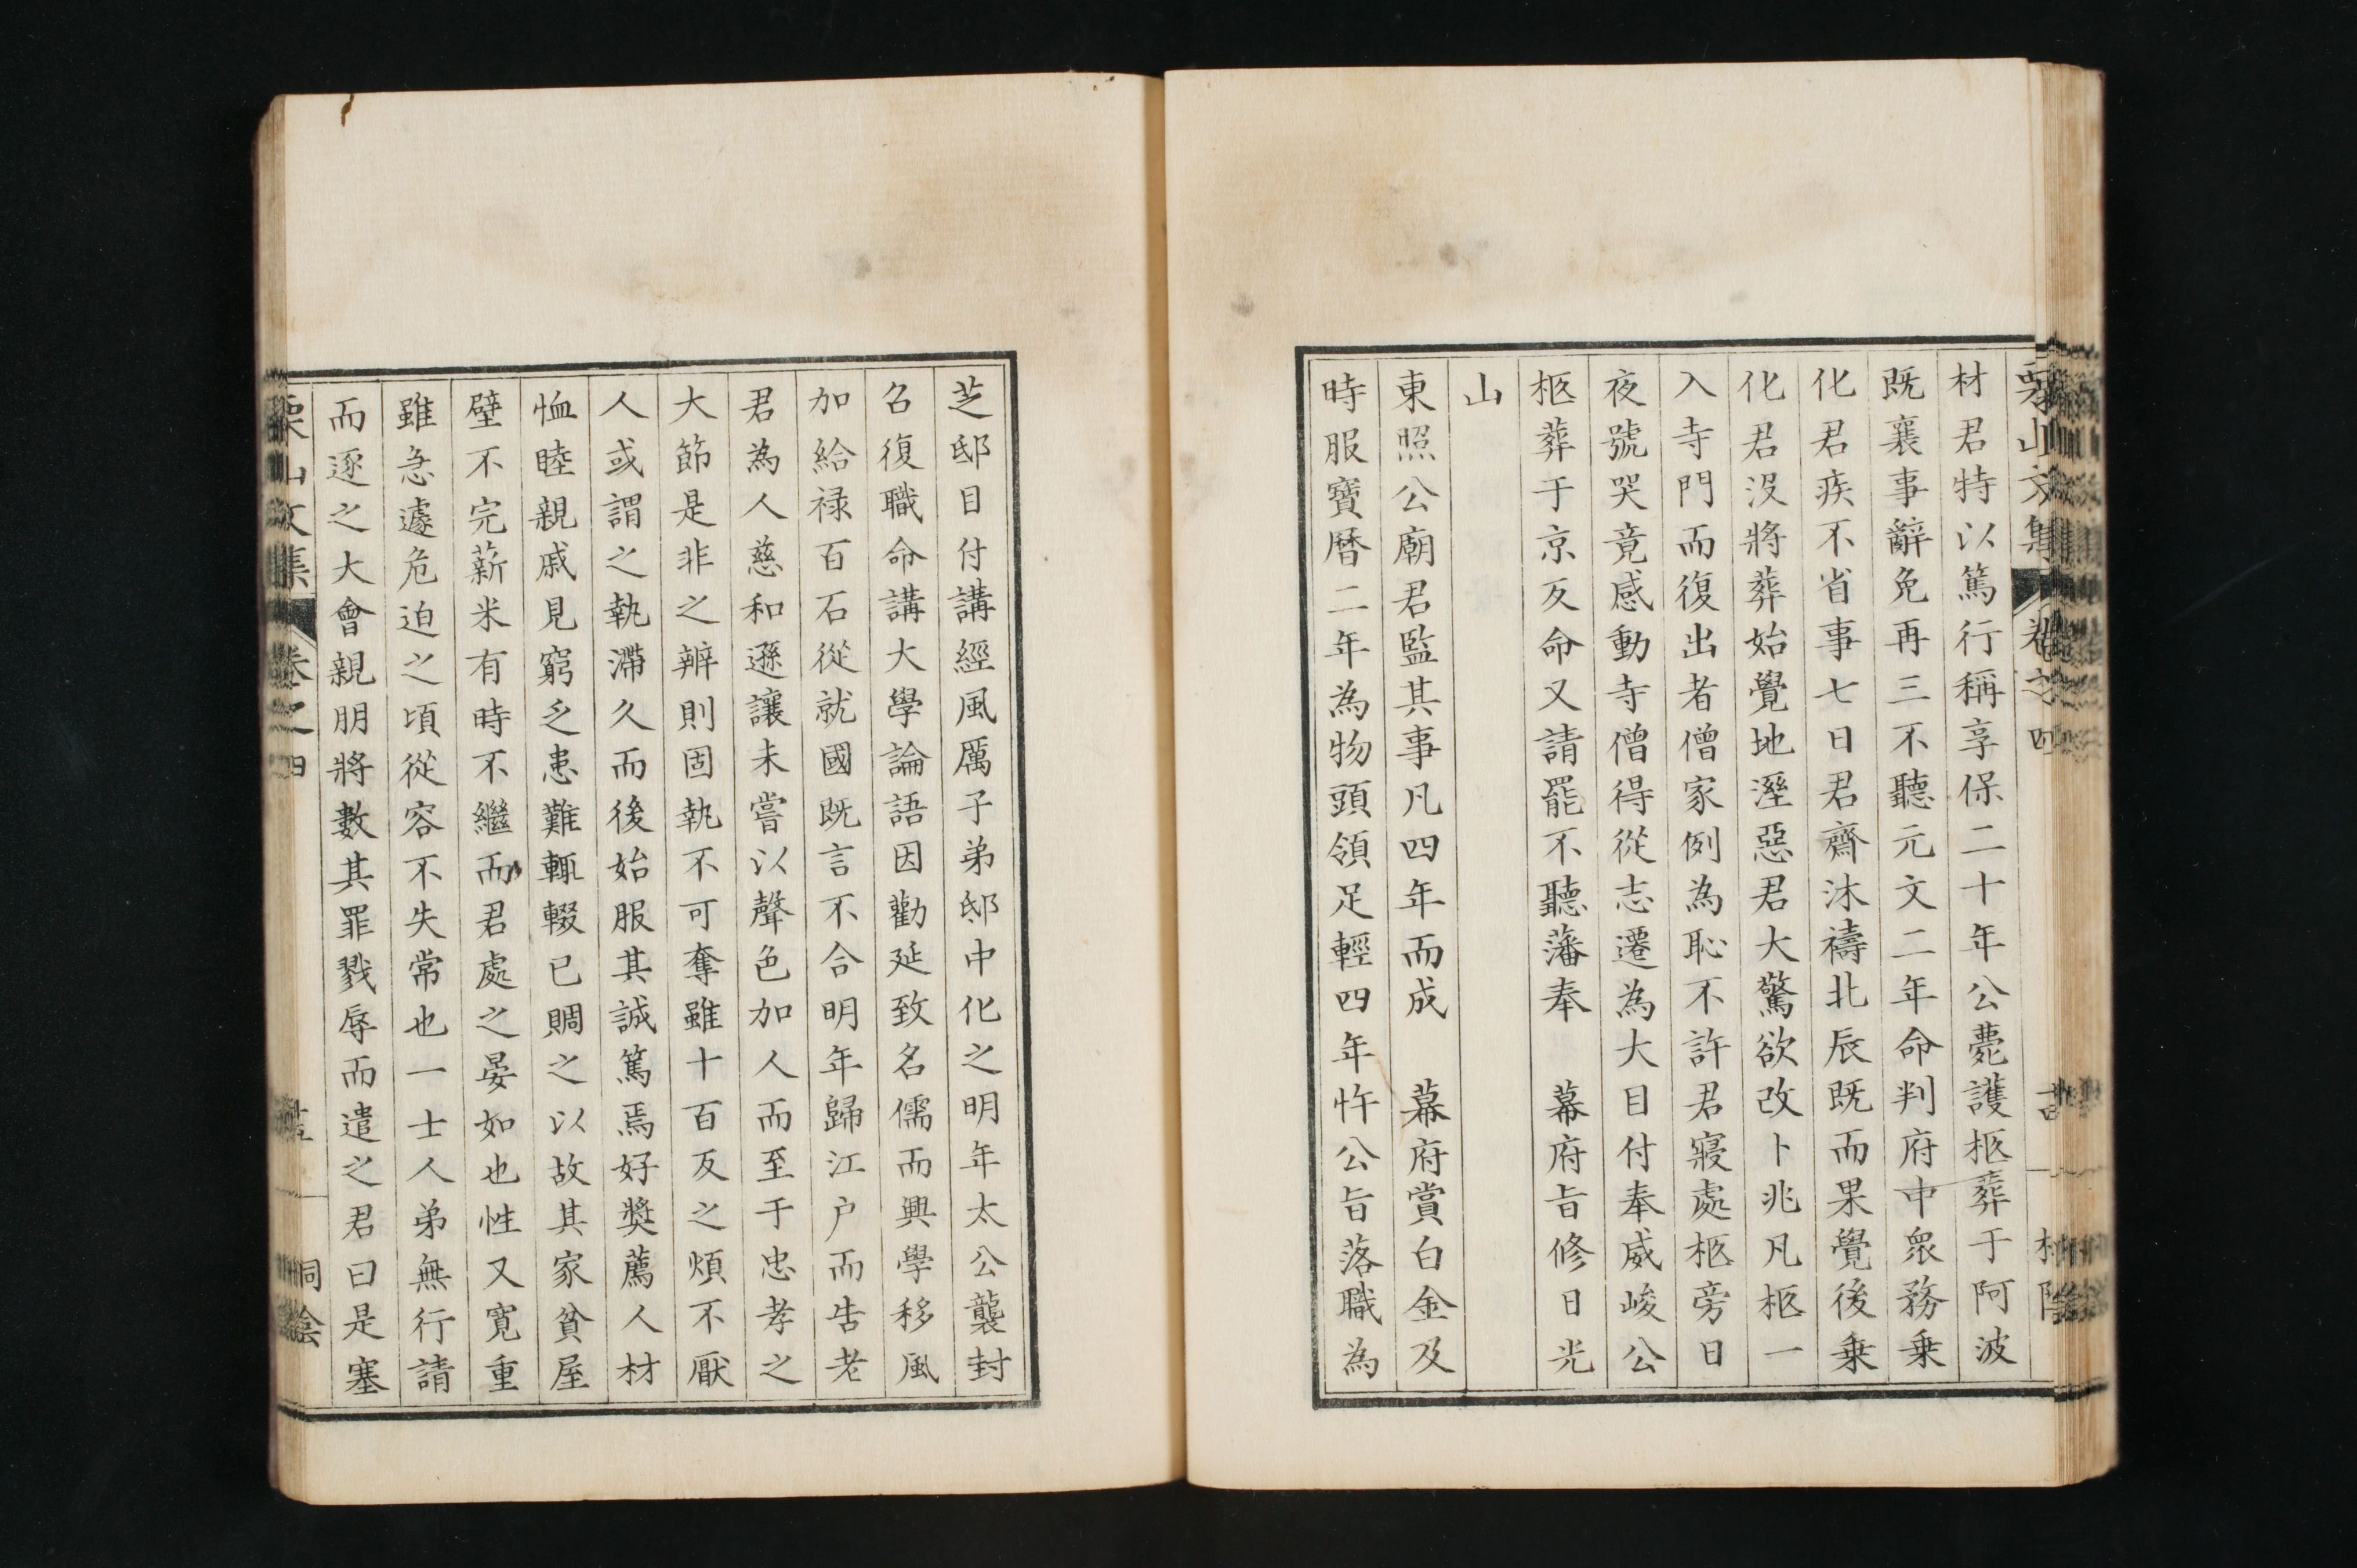 栗山文集 卷之四
材君特以篤行稱享保二十年公薨護柩葬于阿波
既襄事辭免再三不聽元文二年命判府中衆務乗
化君疾不省事七日君齋沐禱北辰既而果覺後乗
化君没將葬始覺地溼惡君大驚欲改卜兆凡柩一
入寺門而復出者僧家例為恥不許君寢處柩旁日
夜號哭竟感動寺僧得從志遷為大目付奉威峻公
柩葬于京反命又請罷不聽藩奉　幕府旨修日光
山
東照公廟君監其事凡四年而成　幕府賞白金及
時服寶曆二年為物頭領足輕四年忤公旨落職為
芝邸目付講經風厲子弟邸中化之明年太公襲封
召復職命講大學論語因勸延致名儒而興學移風
加給禄百石從就國既言不合明年歸江户而告老
君為人慈和遜讓未嘗以聲色加人而至于忠孝之
大節是非之辨則固執不可奪雖十百反之煩不厭
人或謂之執滯久而後始服其誠篤焉好奬薦人材
恤睦親戚見窮乏患難輒輟已賙之以故其家貧屋
壁不完薪米有時不繼而君處之晏如也性又寛重
雖急遽危迫之頃從容不失常也一士人弟無行請
而逐之大會親朋將數其罪戮辱而遣之君曰是塞
栗山文集 卷之四